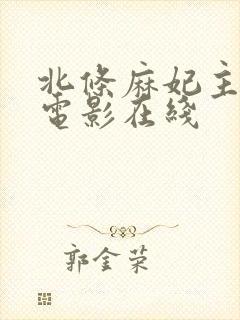 北條麻妃主
電影在綫
郭金荣